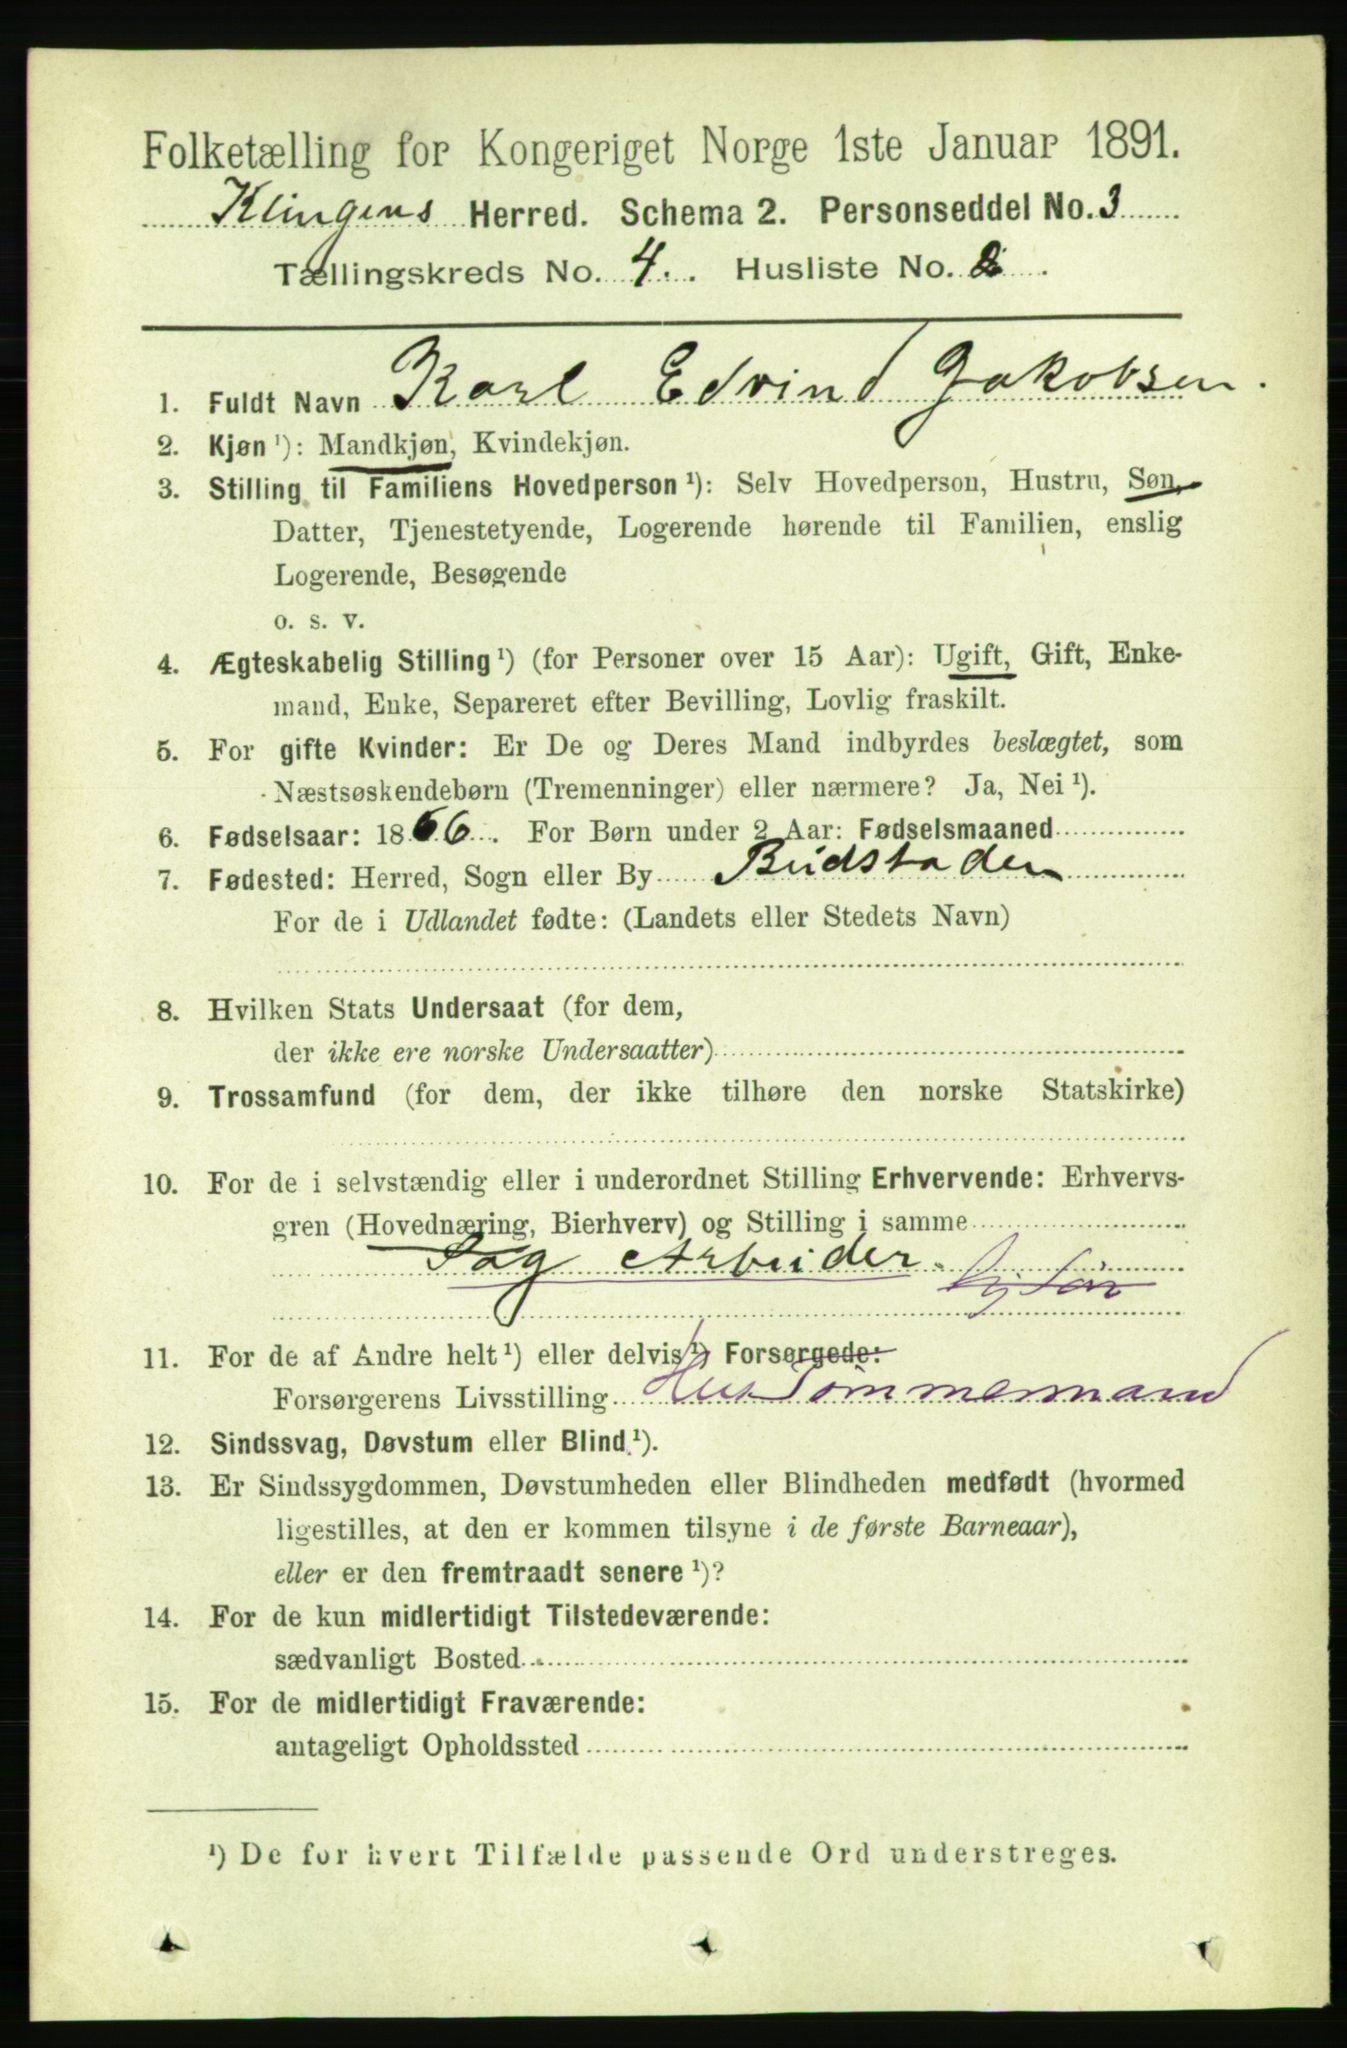 Folketælling for Kongeriget Norge 1ste Januar 1891.
Klingens Herred. Schema 2. Personseddel No. 3
Tællingskreds No. 4. Husliste No. 2
1. Fuldt Navn Karl Edvind Jakobsen.
2. Kjøn ¹): Mandkjøn, Kvindekjøn.
3. Stilling til Familiens Hovedperson ¹): Selv Hovedperson, Hustru, Søn,
Datter, Tjenestetyende, Logerende hørende til Familien, enslig
Logerende, Besøgende
o. s. v.
4. Ægteskabelig Stilling ¹) (for Personer over 15 Aar): Ugift, Gift, Enke-
mand, Enke, Separeret efter Bevilling, Lovlig fraskilt.
5. For gifte Kvinder: Er De og Deres Mand indbyrdes beslægtet, som
Næstsøskendebørn (Tremenninger) eller nærmere? Ja, Nei ¹).
6. Fødselsaar: 1866. For Børn under 2 Aar: Fødselsmaaned
7. Fødested: Herred, Sogn eller By Budstaden
For de i Udlandet fødte: (Landets eller Stedets Navn)
8. Hvilken Stats Undersaat (for dem,
der ikke ere norske Undersaatter)
9. Trossamfund (for dem, der ikke tilhøre den norske Statskirke)
10. For de i selvstændig eller i underordnet Stilling Erhvervende: Erhvervs-
gren (Hovednæring, Bierhverv) og Stilling i samme
Sag Arbeider.
11. For de af Andre helt ¹) eller delvis ¹) Forsørgede:
Forsørgerens Livsstilling Hus Tømmermand
12. Sindssvag, Døvstum eller Blind ¹).
13. Er Sindssygdommen, Døvstumheden eller Blindheden medfødt (hvormed
ligestilles, at den er kommen tilsyne i de første Barneaar),
eller er den fremtraadt senere ¹)?
14. For de kun midlertidigt Tilstedeværende:
sædvanligt Bosted
15. For de midlertidigt Fraværende:
antageligt Opholdssted
¹) De for hvert Tilfælde passende Ord understreges.